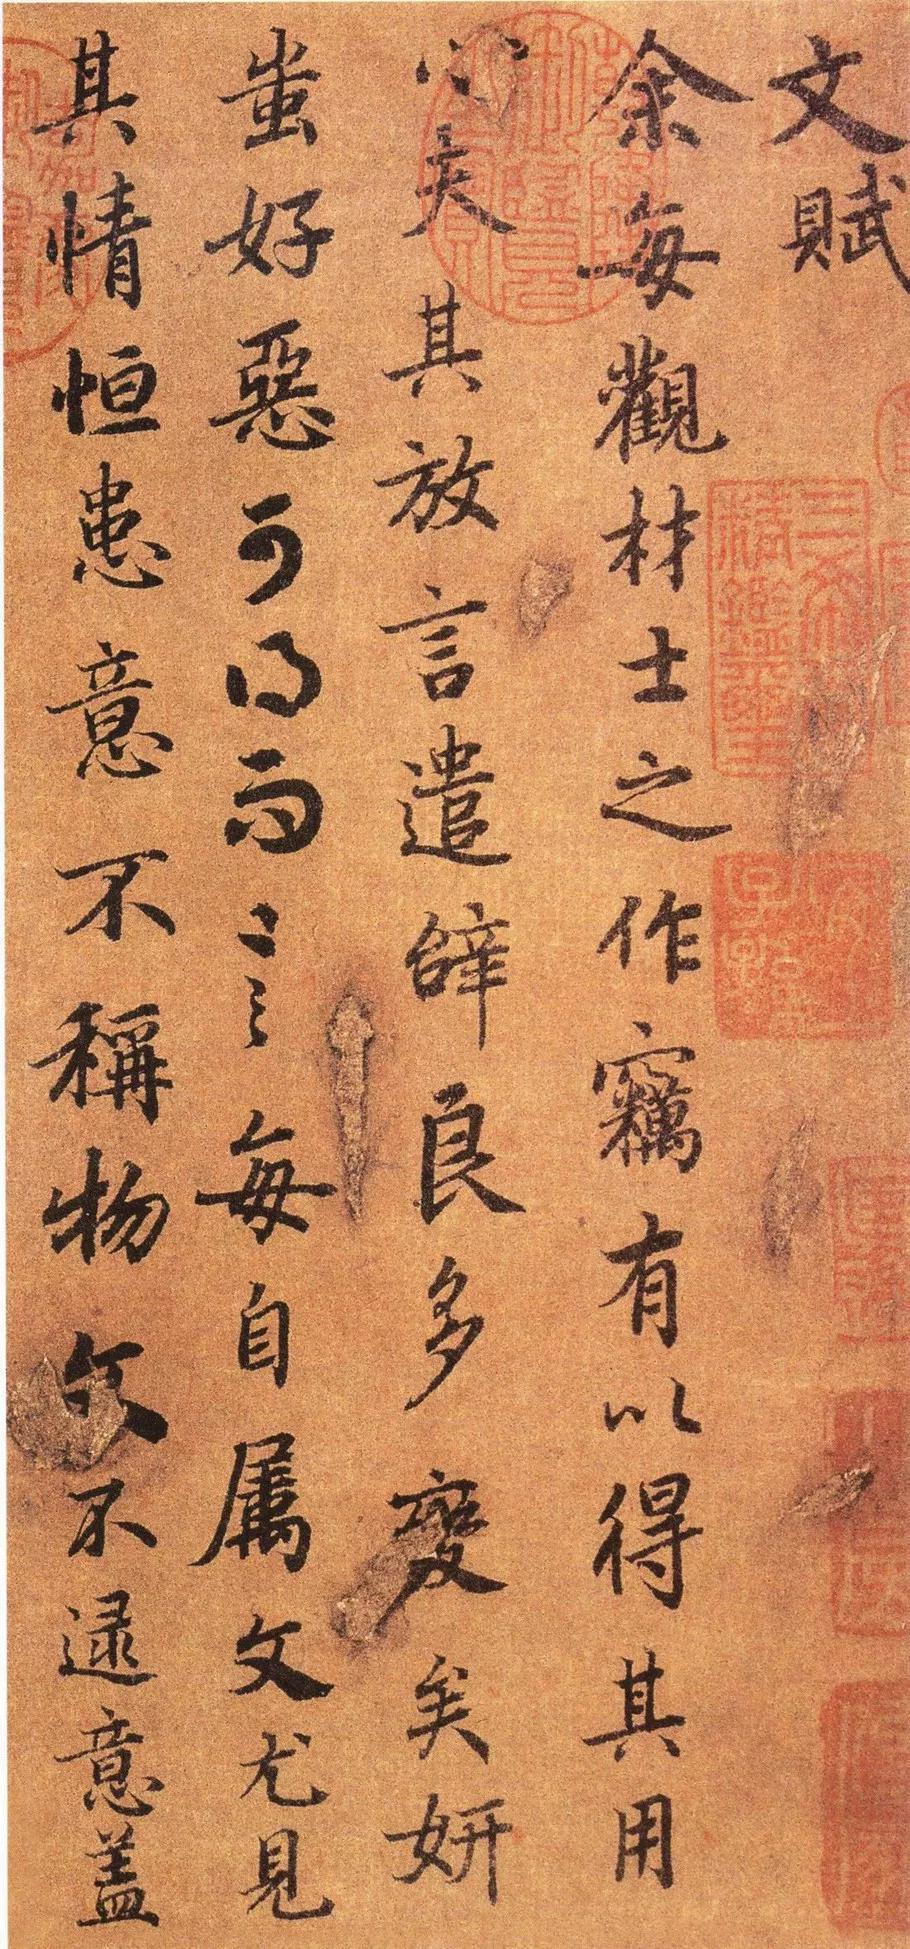 文賦
余每觀材士之作竊有以得其用
心夫其放言遣辞良多變矣妍
蚩好惡可得而言每自属文尤見
其情恒患意不稱物文不逮意蓋
三希堂精鑑璽
宜子孫